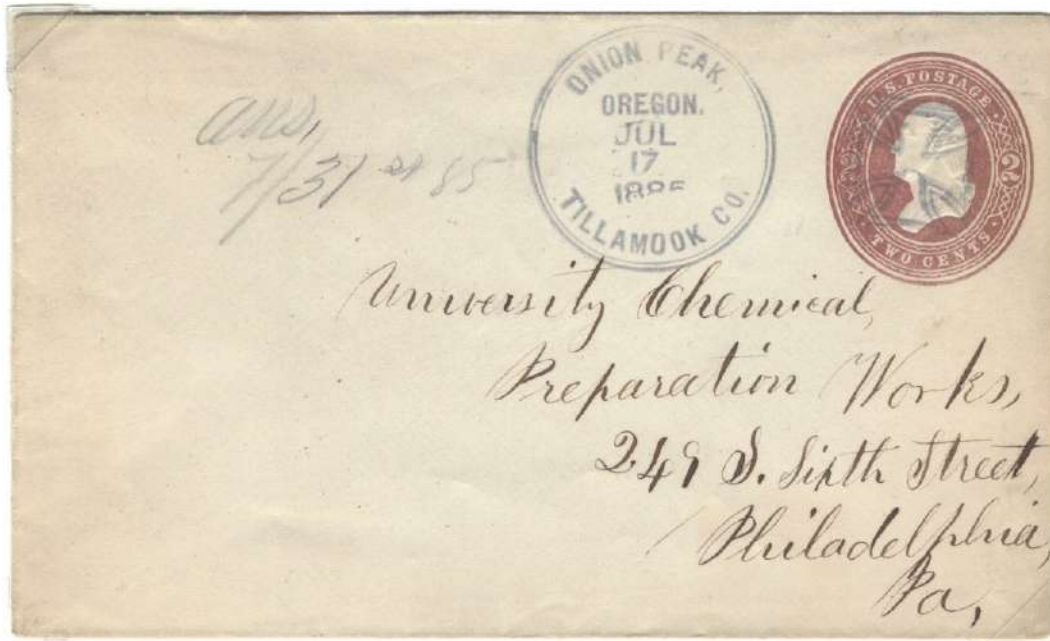 ONION PEAK,
OREGON.
JUL
17
1885
TILLAMOOK CO.
U.S. POSTAGE
2 2
TWO CENTS
ans,
7/31st 85
University Chemical,
Preparation Works,
249 S. Sixth Street,
Philadelphia,
Pa,